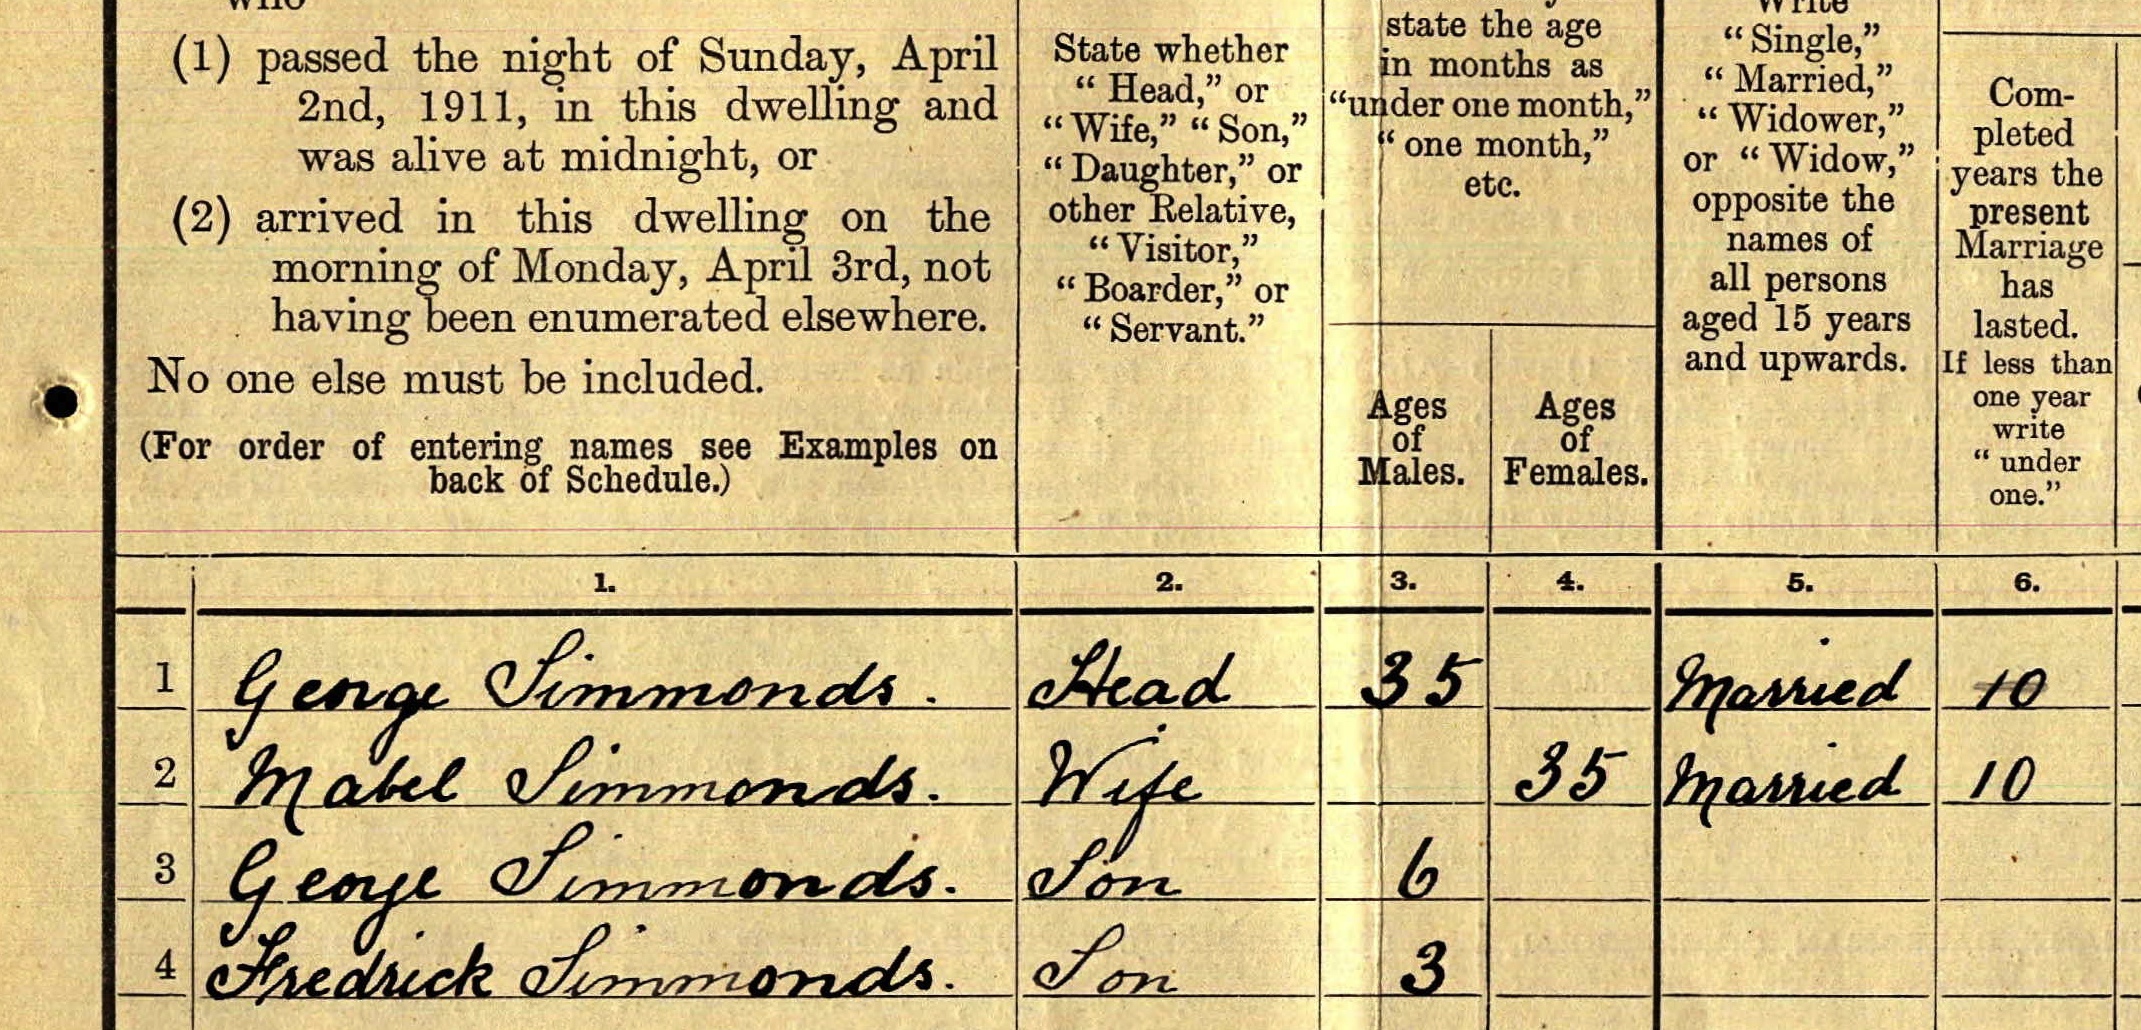 who
(1) passed the night of Sunday, April
2nd, 1911, in this dwelling and
was alive at midnight, or
(2) arrived in this dwelling on the
morning of Monday, April 3rd, not
having been enumerated elsewhere.
No one else must be included.
(For order of entering names see Examples on
back of Schedule.)
State whether
“Head,” or
“Wife,” “Son,”
“Daughter,” or
other Relative,
“Visitor,”
“Boarder,” or
“Servant.”
state the age
in months as
“under one month,”
“one month,”
etc.
Ages
of
Males.
Ages
of
Females.
Write
“Single,”
“Married,”
“Widower,”
or “Widow,”
opposite the
names of
all persons
aged 15 years
and upwards.
Com-
pleted
years the
present
Marriage
has
lasted.
If less than
one year
write
“under
one.”
1. 2. 3. 4. 5. 6.
1 George Simmonds. Head 35 Married 10
2 Mabel Simmonds. Wife 35 Married 10
3 George Simmonds. Son 6
4 Fredrick Simmonds. Son 3